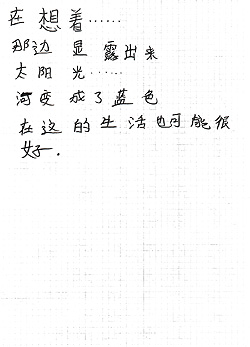 在想着……
那边 显露出来
太阳光……
河变成了蓝色
在这的生活也可能很
好.